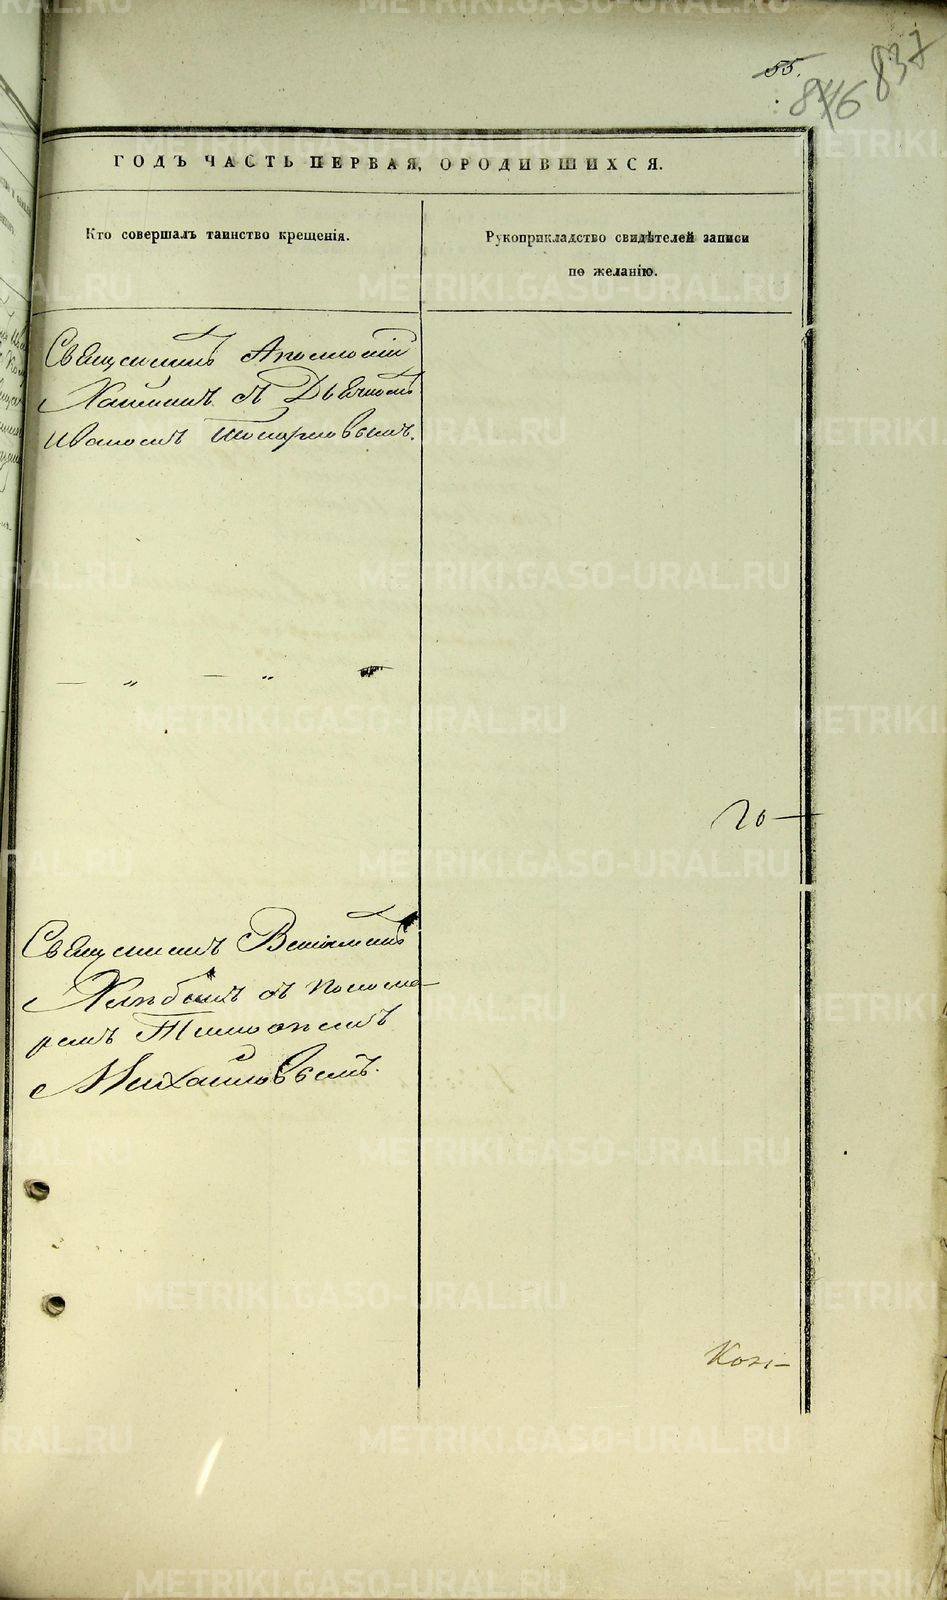 55.
846 837
ГОДЪ ЧАСТЬ ПЕРВАЯ, О РОДИВШИХСЯ.
Кто совершалъ таинство крещенія.
Рукоприкладство свидѣтелей записи
по желанію.
Священникъ
съ Дьячкомъ
Иваномъ
— „ — „
Священникъ Веніаминъ
Хлѣбинъ съ Понома-
ремъ Тимофеемъ
Михайловымъ.
METRIKI.GASO-URAL.RU